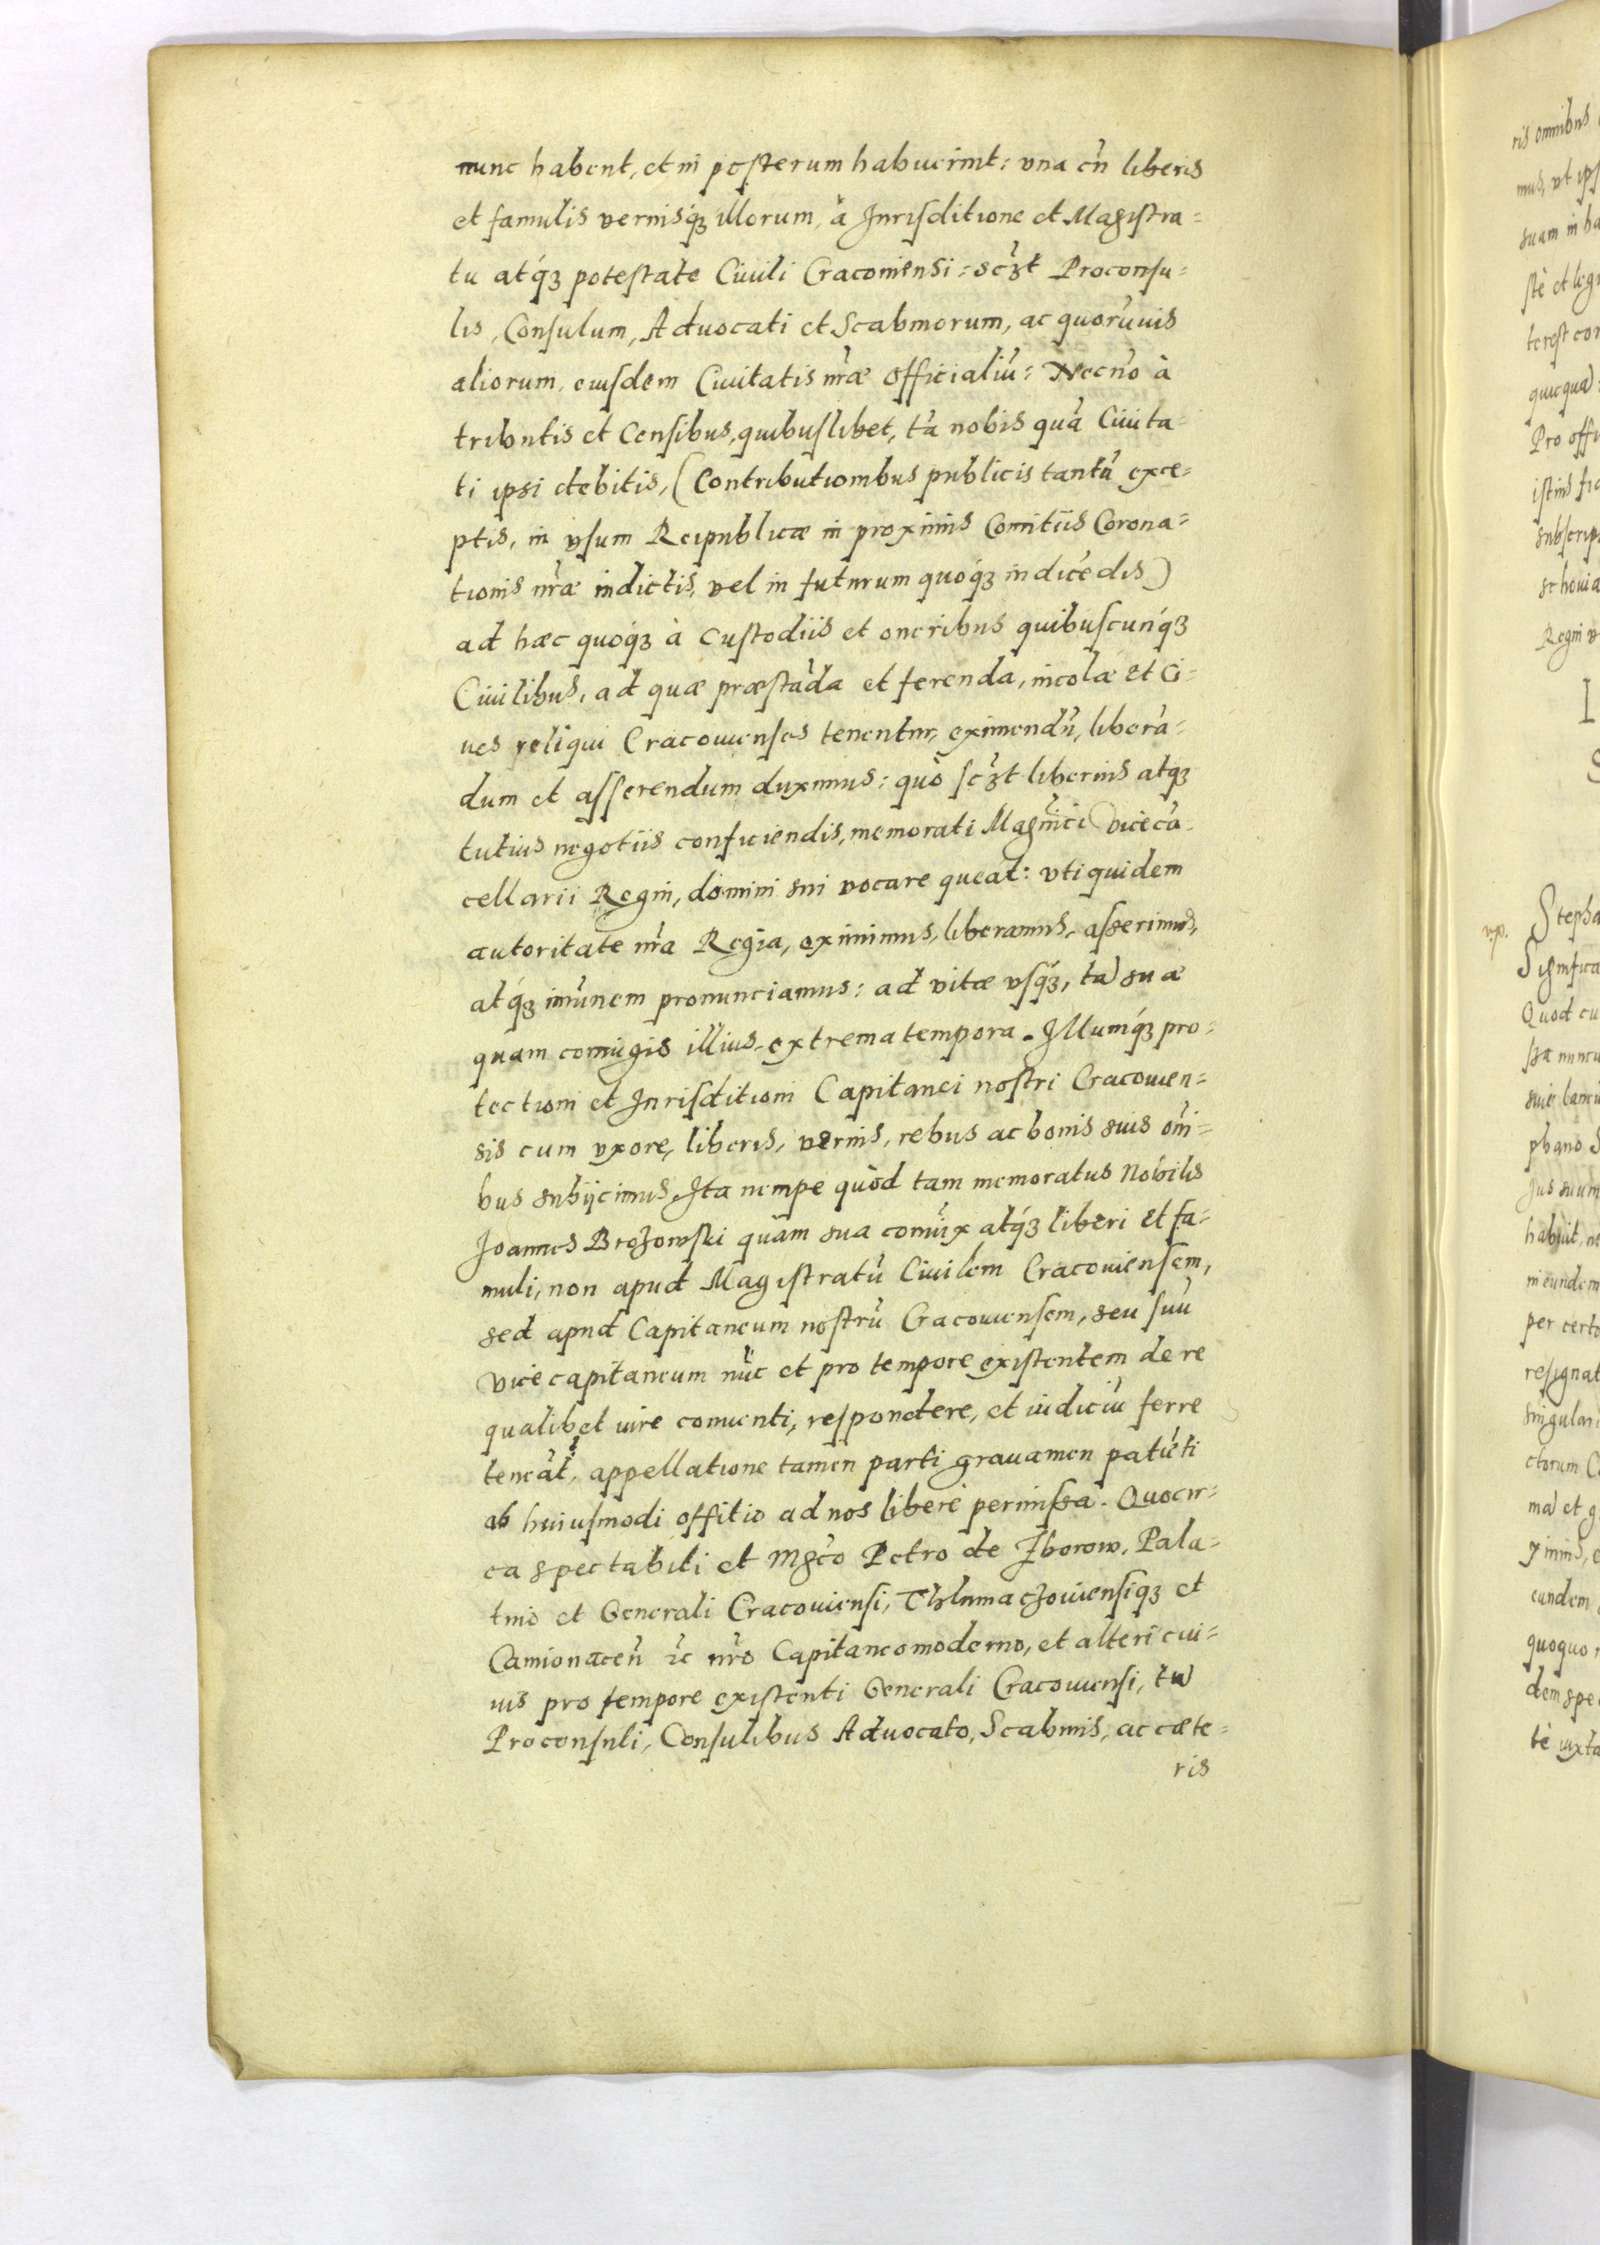 nunc habent, et in posterum habuerint: vna cũ liberis
et famulis vernisq́ꝫ illorum, à Jurisditione et Magistra=
tu atq́ꝫ potestate Ciuili Cracouiensi: scꝫt Proconsu=
lis, Consulum, Aduocati et Scabinorum, ac quorũuis
aliorum, eiusdem Ciuitatis nr̃æ officialiũ: Necnõ à
tributis et Censibus, quibuslibet, tã nobis quã Ciuita
ti ipsi debitis, (Contributionibus publicis tantũ exce=
ptis, in vsum Reipublicæ in proximis Comitiis Corona=
tionis nr̃æ indictis, vel in futurum quoq́ꝫ indicẽdis)
ad hæc quoq́ꝫ à Custodiis et oneribus quibuscunq́ꝫ
Ciuilibus, ad quæ præstãda et ferenda, incolæ et Ci=
ues reliqui Cracouienses tenentur, eximendũ, liberã=
dum et asserendum duximus: quò scꝫt liberius atqꝫ
tutius negotiis conficiendis, memorati Magn̄ici Vicecã
cellarii Regni, domini sui vocare queat: vti quidem
autoritate nr̃a Regia, eximimus, liberamus, asserimus,
atq́ꝫ imũnem pronunciamus: ad vitæ vsq́ꝫ, tã suæ
quam coniugis illius extrema tempora. Illumq́ꝫ pro=
tectioni et Jurisditioni Capitanei nostri Cracouien=
sis cum vxore, liberis, vernis, rebus ac bonis suis oñi=
bus subijcimus. Ita nempe quòd tam memoratus Nobilis
Joannes Brozowski quàm sua coniũx atq́ꝫ liberi et fa=
muli, non apud Magistratũ Ciuilem Cracouiensem,
sed apud Capitaneum nostrũ Cracouiensem, seu suũ
vicecapitaneum nũc et pro tempore existentem de re
qualibet iure conuenti, respondere, et iudiciũ ferre
teneãt, appellatione tamen parti grauamen patiẽti
ab huiusmodi offitio ad nos liberè permissa. Quocir=
ca spectabili et Mgc̃o Petro de Zborow, Pala=
tino et Generali Cracouiensi, Thlumaczouiensiqꝫ et
Camionaceñ ꝛc nr̃o Capitaneo moderno, et alteri cui=
uis pro tempore existenti Generali Cracouiensi, tũ
Proconsuli, Consulibus Aduocato, Scabinis, ac cæte=
ris